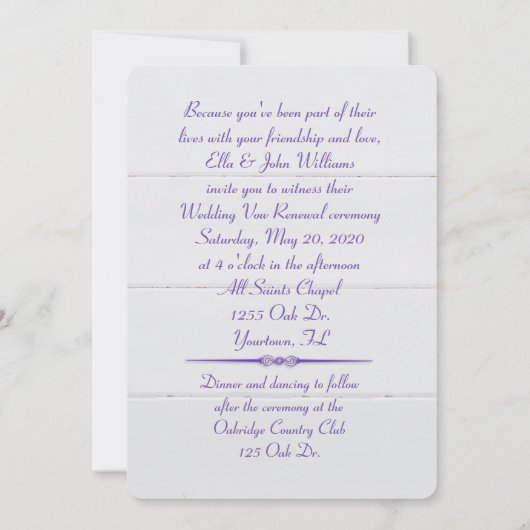 Because you've been part of their
lives with your friendship and love,
Ella & John Williams
invite you to witness their
Wedding Vow Renewal ceremony
Saturday, May 20, 2020
at 4 o'clock in the afternoon
All Saints Chapel
1255 Oak Dr.
Yourtown, FL
Dinner and dancing to follow
after the ceremony at the
Oakridge Country Club
125 Oak Dr.